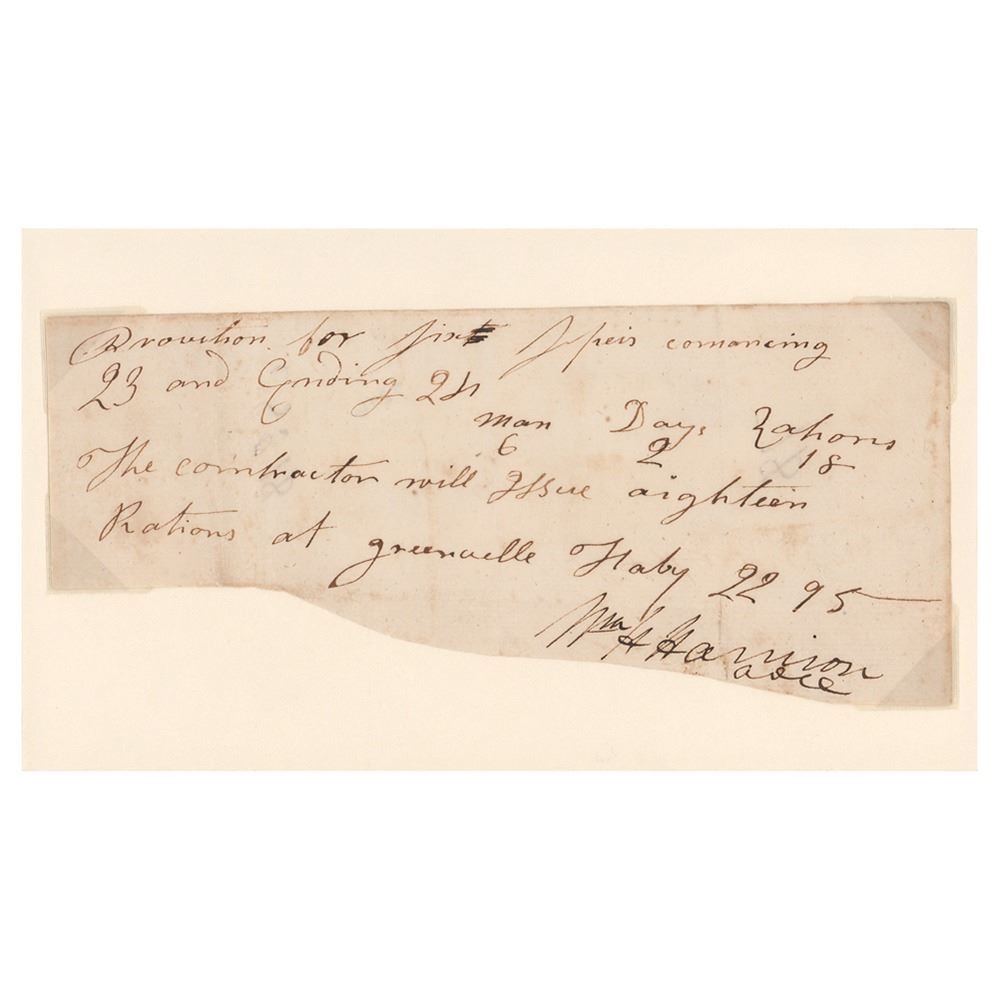 Provition for six Speis comancing
23 and Ending 24
man Days Rations
6 2 18
The comtractor will Issue aighteen
Rations at greenvelle 22 95
Wm H Harrison
adce